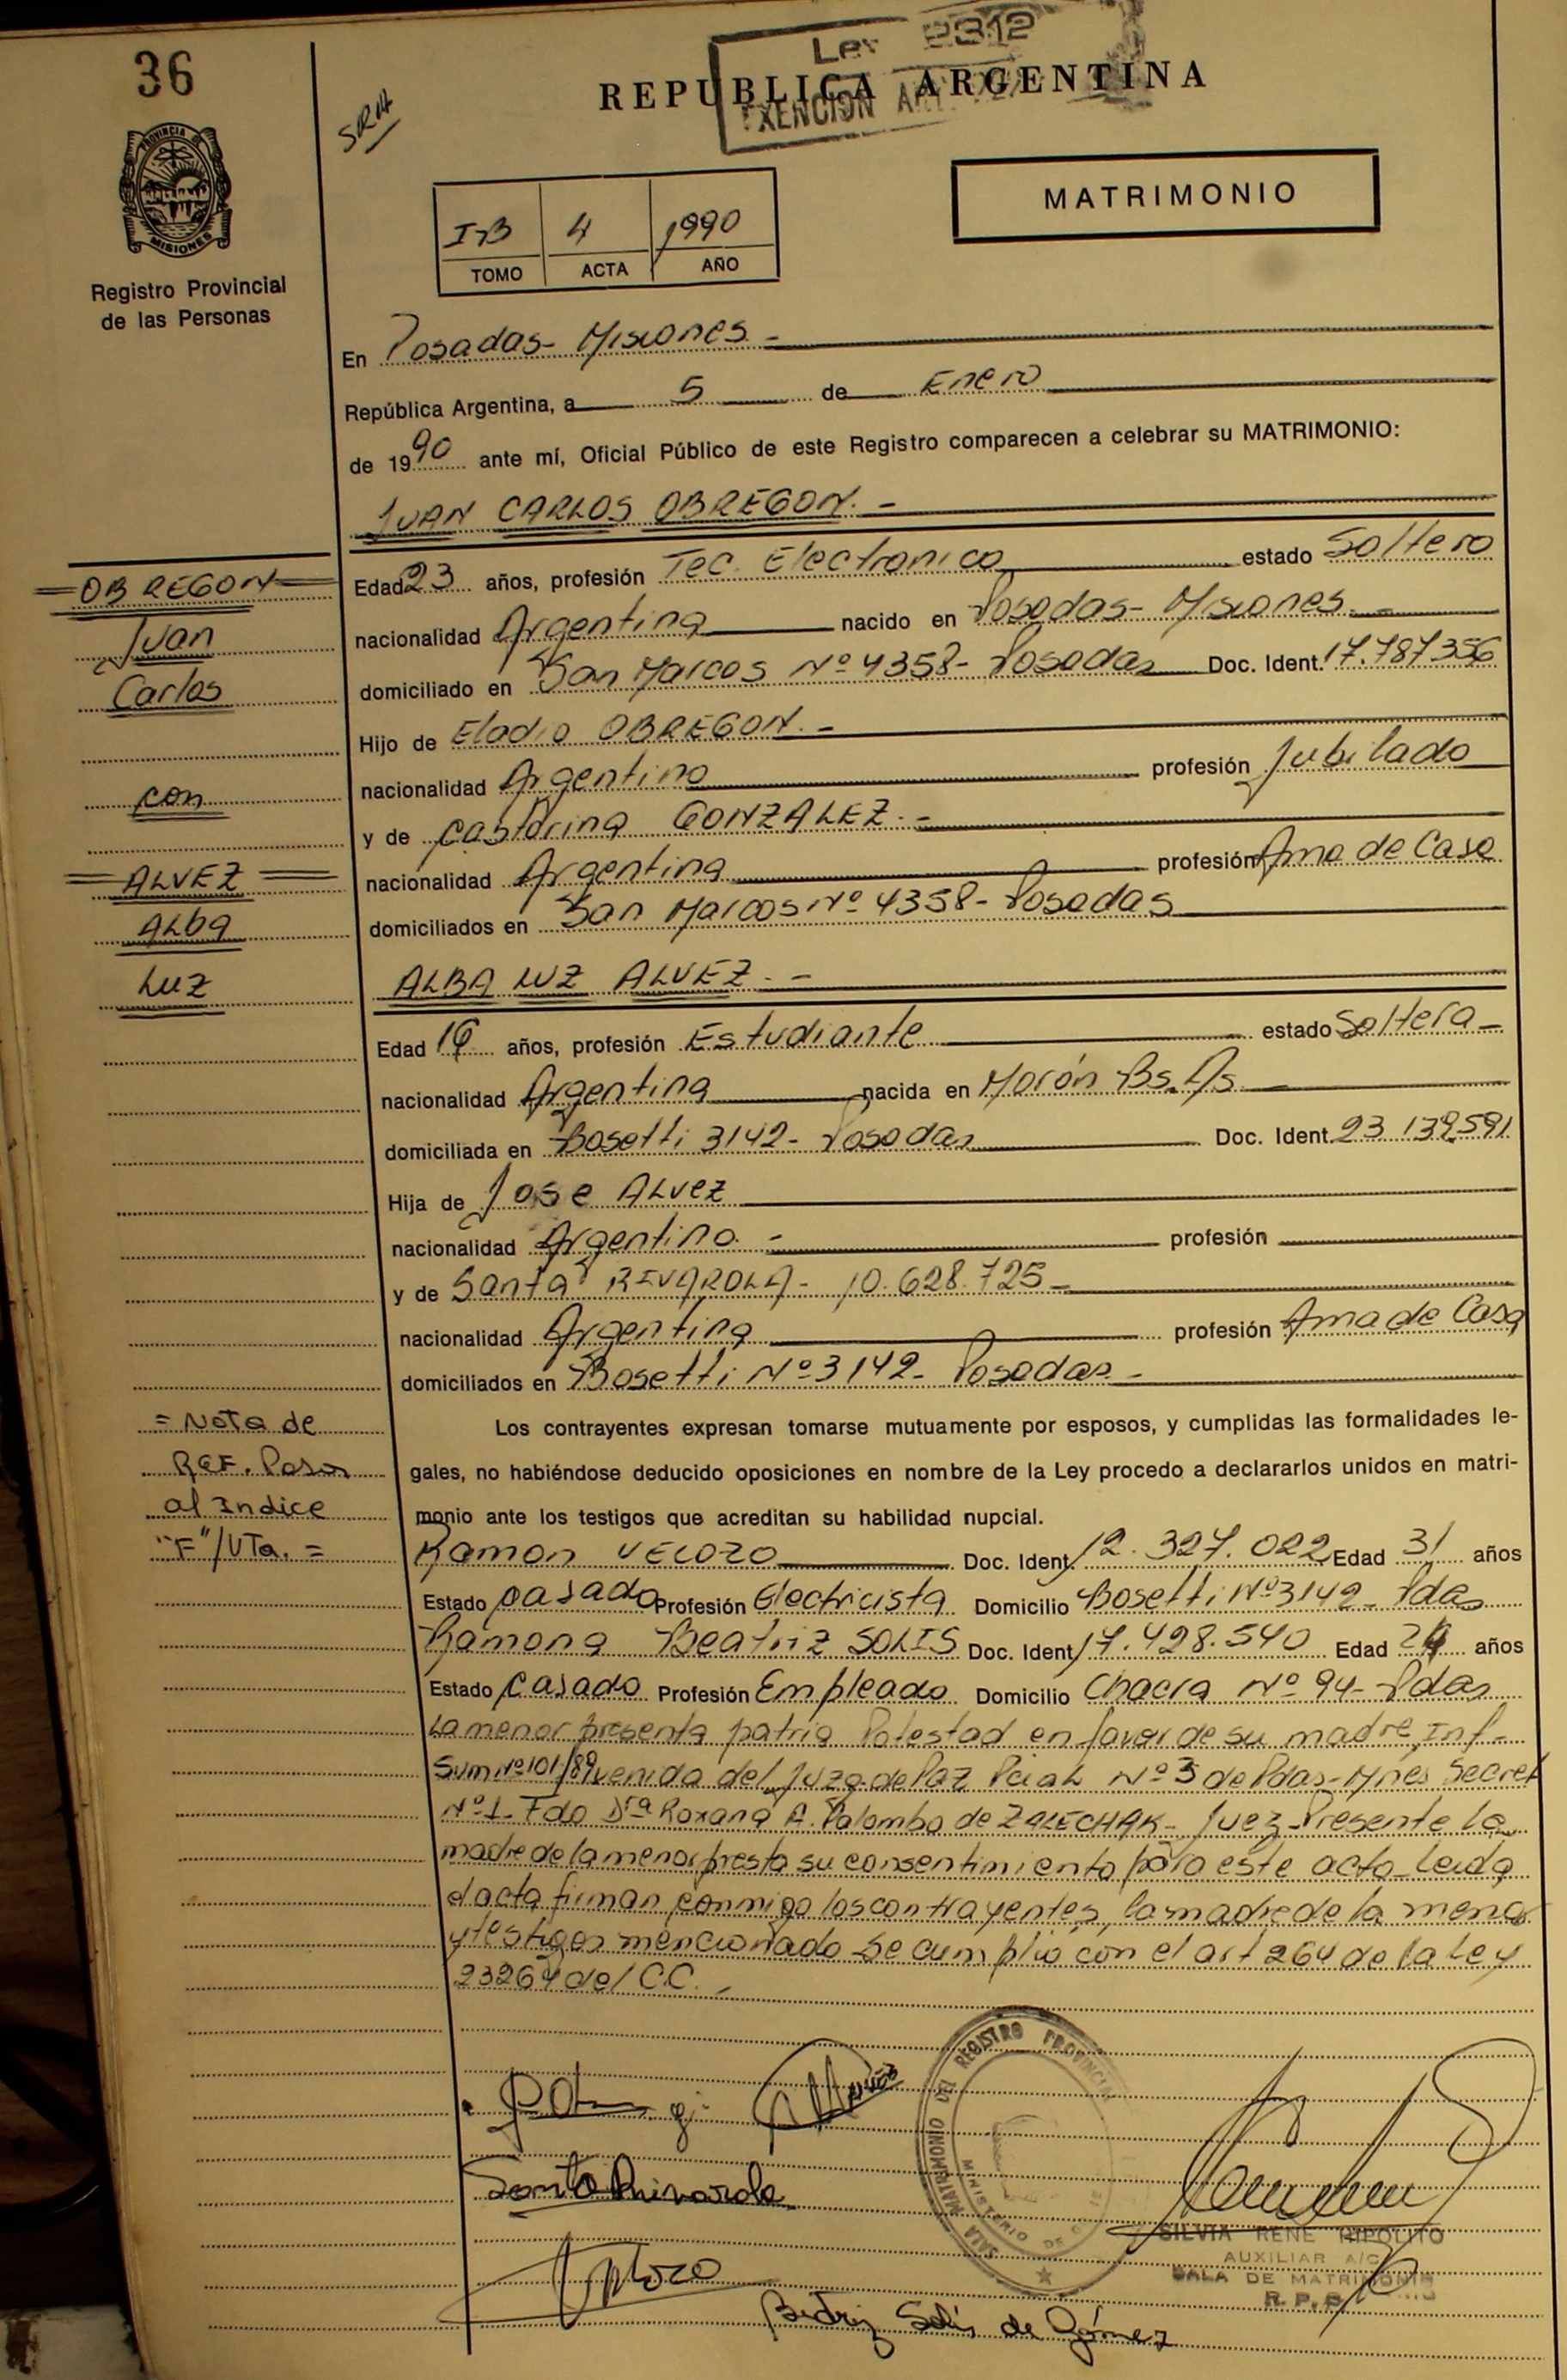 36
Ley 2312
EXENCION
REPUBLICA ARGENTINA
PROVINCIA
MISIONES
Registro Provincial
de las Personas
MATRIMONIO
4 1990
TOMO ACTA AÑO
En Posadas- Misiones.-
República Argentina, a 5 de Enero
de 1990 ante mí, Oficial Público de este Registro comparecen a celebrar su MATRIMONIO:
JUAN CARLOS OBREGON.-
=OBREGON=
Juan
Carlos
con
=ALVEZ=
ALba
Luz
Edad 23 años, profesión Tec. Electronico estado Soltero
nacionalidad Argentina nacido en Posadas- Misiones.-
domiciliado en San Marcos Nº 4358- Posadas Doc. Ident. 17.787356
Hijo de Eladio OBREGON.-
nacionalidad Argentino profesión Jubilado
y de Castorina GONZALEZ.-
nacionalidad Argentina profesión Ama de Casa
domiciliados en San Marcos Nº 4358- Posadas
ALBA LUZ ALVEZ.-
Edad 16 años, profesión Estudiante estado Soltera-
nacionalidad Argentina nacida en Morón Bs.As.
domiciliada en Bosetti 3142- Posadas Doc. Ident. 23 139.591
Hija de Jose ALvez
nacionalidad Argentino.- profesión
y de Santa RIVAROLA- 10.628.725-
nacionalidad Argentina profesión Ama de Casa
domiciliados en Bosetti Nº 3142- Posadas.-
= Nota de
Ref. Pasa
al Indice
"F"/Vta. =
Los contrayentes expresan tomarse mutuamente por esposos, y cumplidas las formalidades le-
gales, no habiéndose deducido oposiciones en nombre de la Ley procedo a declararlos unidos en matri-
monio ante los testigos que acreditan su habilidad nupcial.
Ramon VELOZO Doc. Ident. 12.327.022 Edad 31 años
Estado casado Profesión Electricista Domicilio Bosetti Nº 3142- Pdas
Ramona Beatriz SOLIS Doc. Ident. 17.428.540 Edad años
Estado Casado Profesión Empleado Domicilio Chacra Nº 94- Pdas
La menor presenta patria Potestad en favor de su madre, Inf-
Sum Nº 101/89 venida del Juzg. de Paz Nº 3 de Pdas- Mnes Secret
Nº 1- Fdo Dra Roxana A. Palombo de ZALECHAK- Juez- Presente la
madre de la menor presta su consentimiento para este acto- Leida
el acta firman conmigo los contrayentes, la madre de la menor
y testigos mencionado- Se cumplio con el art 264 de la Ley
23264 del C.C.-
Santa Rivarola
SALA MATRIMONIO DEL REGISTRO PROVINCIAL
MINISTERIO DE
SILVIA RENE HIPOLITO
AUXILIAR A/C
SALA DE MATRIMONIO
R.P.
Beatriz Solís de Gómez